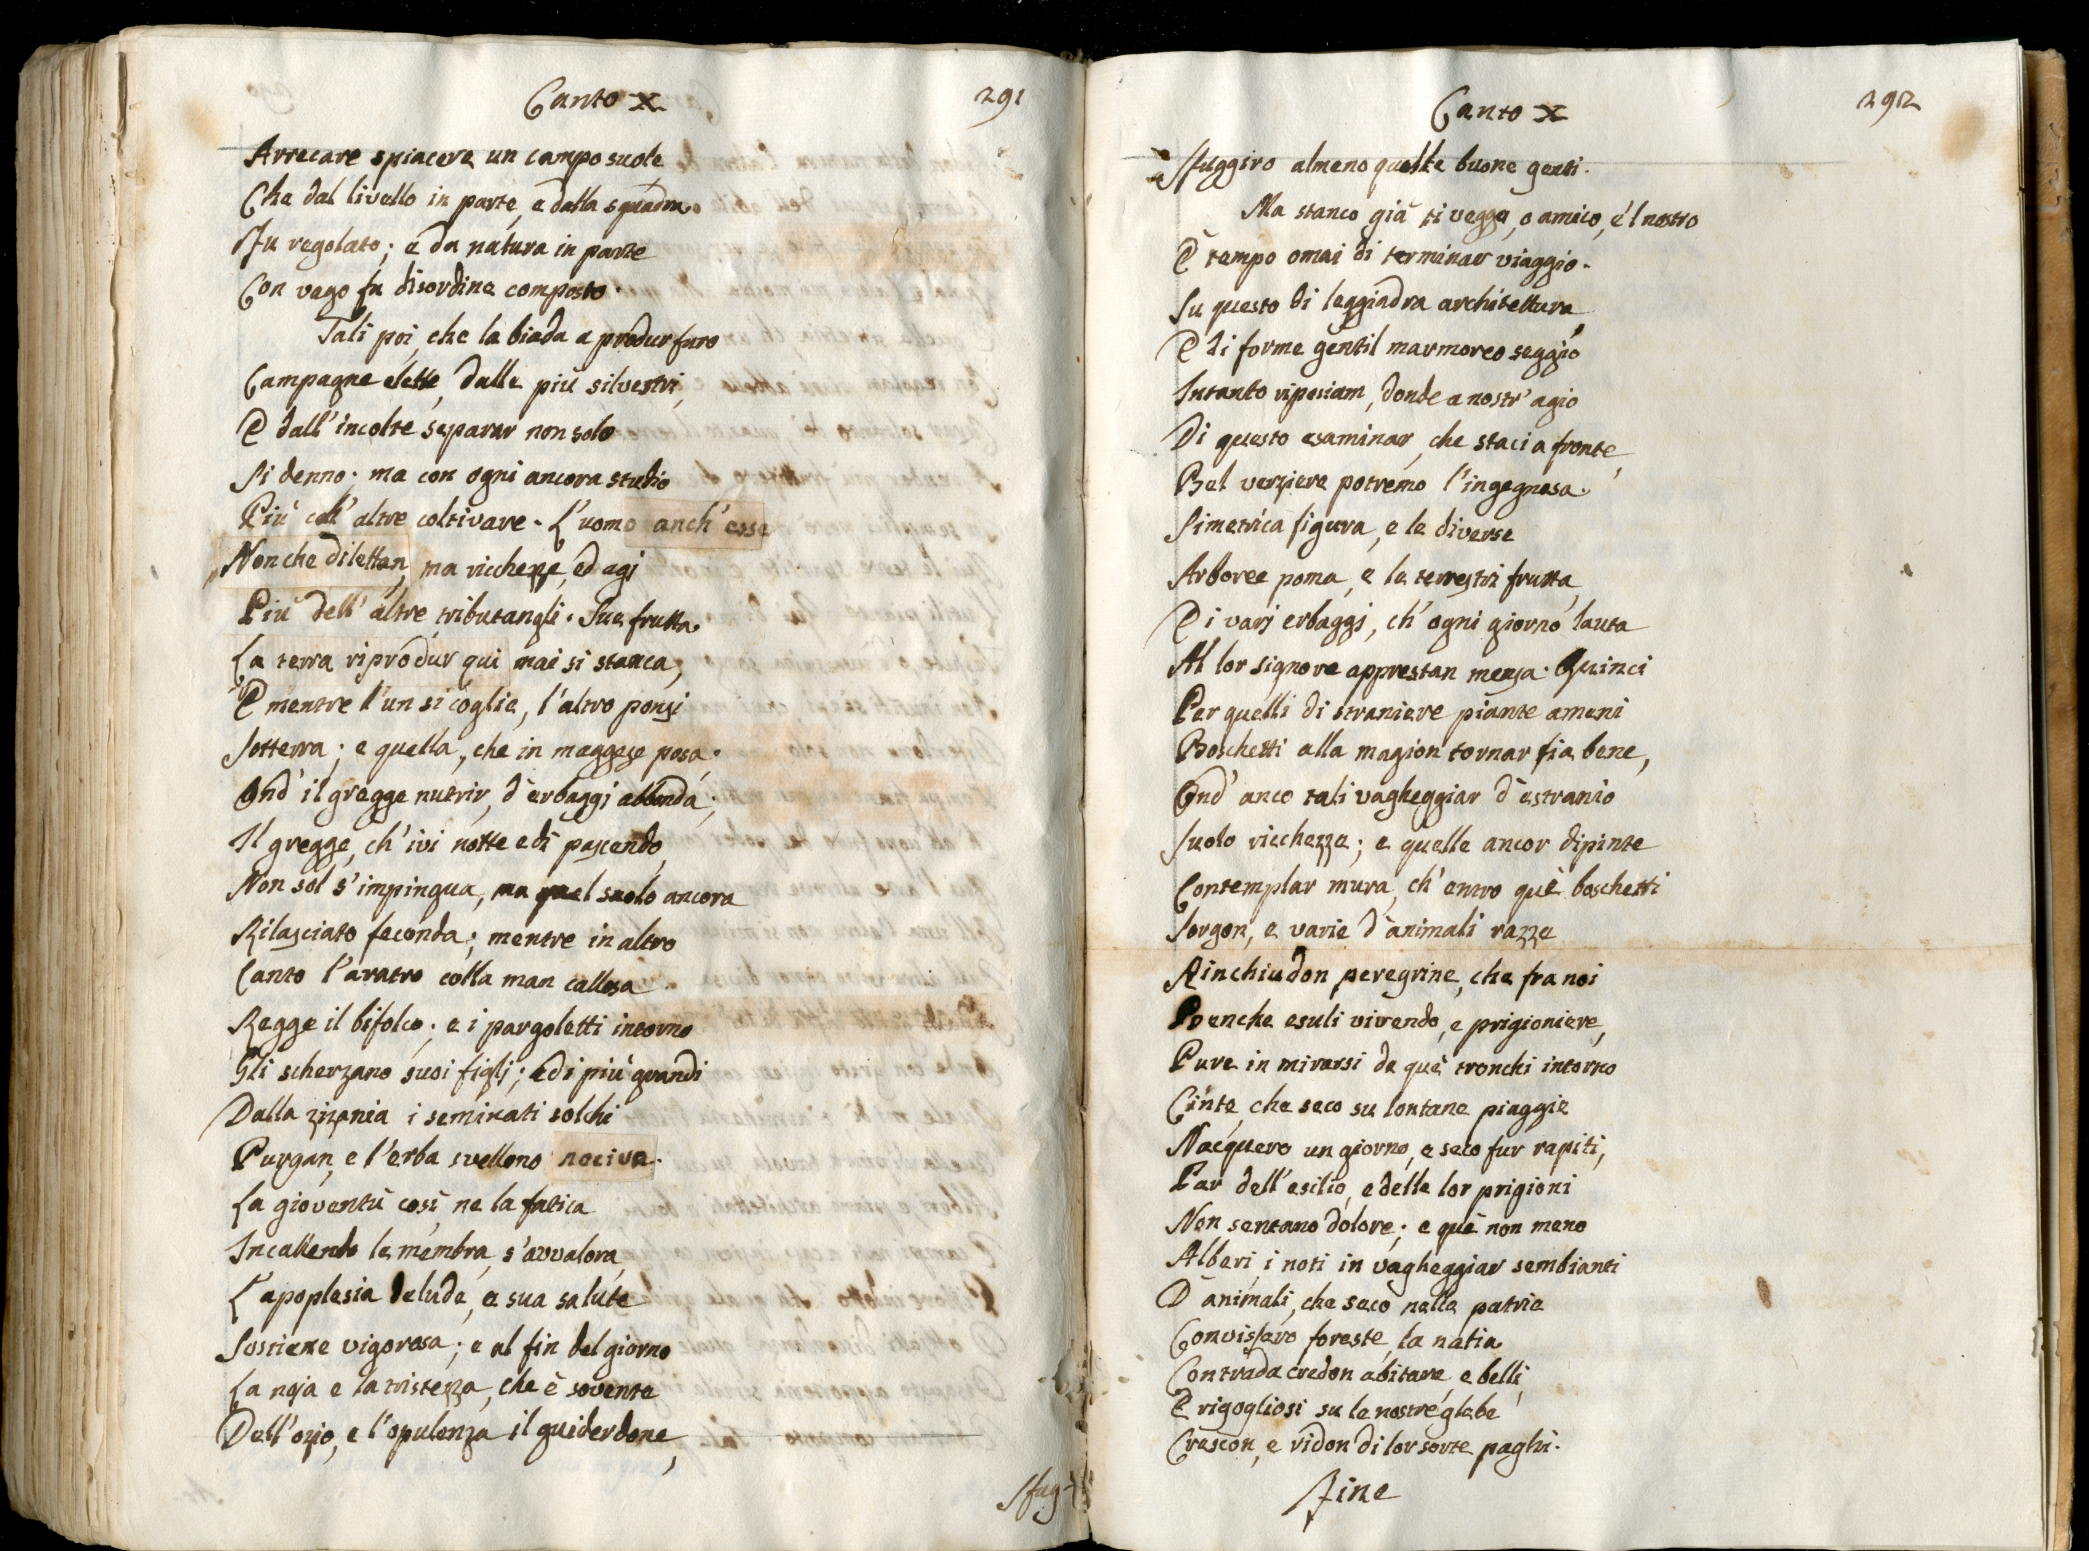 Canto X
291
Arrecare spiacere un campo suole,
Che dal livello in parte, e dalla squadra
Fu regolato; e da natura in parte
Con vago fu disordine composto.
Tali poi, che la biada a produr furo
Campagne elette, dalle più silvestri,
E dall' incolte separar non solo
Si denno; ma con ogni ancora studio
Più coll' altre coltivare. L'uomo anch' esse
Non che dilettan, ma ricchezze, ed agi
Più dell' altre tributangli. Sue frutta
La terra riprodur qui mai si stanca;
E mentre l'un si coglie, l'altro ponsi
Sotterra; e quella, che in maggese posa,
Ond' il gregge nutrir, d'erbaggi abbonda;
Il gregge, ch' ivi notte e dì pascendo,
Non sol s'impingua, ma quel suolo ancora
Rilasciato feconda; mentre in altro
Canto l'aratro colla man callosa
Regge il bifolco; e i pargoletti intorno
Gli scherzano suoi figlj; ed i più grandi
Dalla zizania i seminati solchi
Purgan, e l'erba svellono nociva.
La gioventù così ne la fatica
Incallendo le membra, s'avvalora,
L'apoplesia delude, e sua salute
Sostiene vigorosa; e al fin del giorno
La noja e la tristezza, che è sovente
Dell'ozio, e l'opulenza il guiderdone,
Sfug-
Canto X
292
Sfuggiro almeno quelle buone genti.
Ma stanco già ti veggo, o amico, e'l nostro
È tempo omai di terminar viaggio.
Su questo di leggiadra architettura,
E di forme gentil marmoreo seggio
Intanto riposiam, donde a nostr' agio
Di questo esaminar, che staci a fronte,
Bel verziere potremo l'ingegnosa
Simetrica figura, e le diverse
Arboree poma, e le terrestri frutta,
E i varj erbaggj, ch' ogni giorno lauta
Al lor signore apprestan mensa. Quinci
Per quelli di straniere piante ameni
Boschetti alla magion tornar fia bene,
Ond' anco tali vagheggiar d'estranio
Suolo ricchezze; e quelle ancor dipinte
Contemplar mura, ch' entro què boschetti
Sorgon, e varie d'animali razze
Rinchiudon peregrine, che fra noi
Benche esuli vivendo, e prigioniere,
Pure in mirarsi da què tronchi intorno
Cinte, che seco su lontane piaggie
Nacquero un giorno, e seco fur rapiti,
Par dell'esilio, e della lor prigioni
Non sentano dolore; e què non meno
Alberi, i noti in vagheggiar sembianti
D'animali, che seco nella patria
Convissero foreste, la natia
Contrada credon abitare, e belli,
E rigogliosi su le nostre glebe
Crescon, e ridon di lor sorte paghi.
Fine